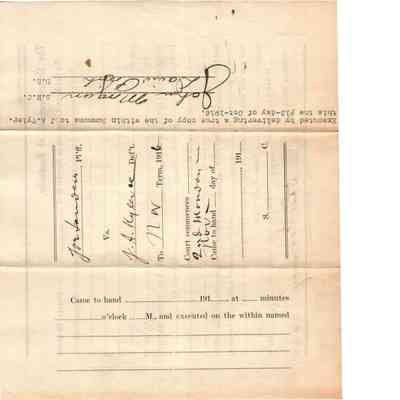 Executed by delivering a true copy of the within Summons to J A Tyler.
this the 21st-day of Oct-1916.
John Morgan S.B.C.
D.S.
Pl'ff.
Vs.
Def't.
To Nov Term, 1916
Court commences
2nd Monday in
Nov
Came to hand day of
191
S. C.
Came to hand 191 at minutes
o'clock M., and executed on the within named